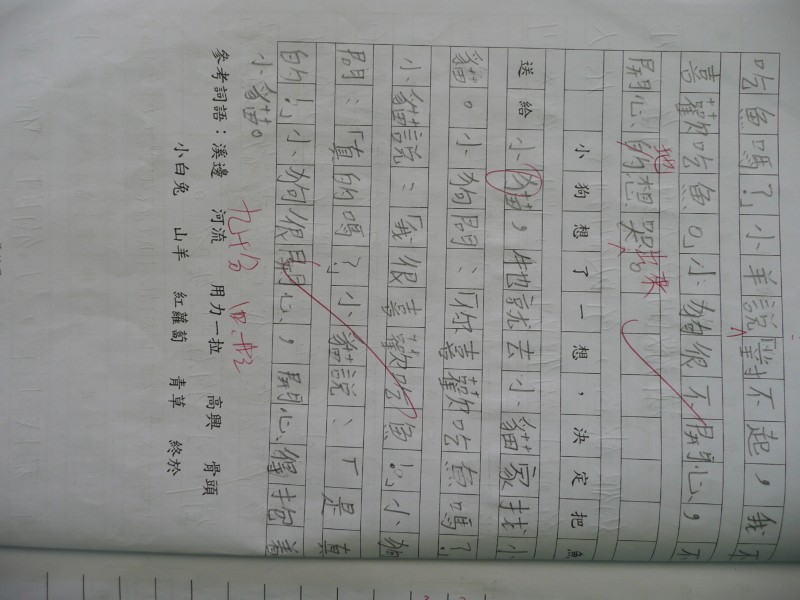 吃魚嗎?」小羊說「對不起,我不
喜歡吃魚。」小狗很不開心,不
開心的想哭。
出來
小狗想了一想,決定把魚
送給小貓,牠就去小貓家找小
貓。小狗問:「你喜歡吃魚嗎?」
小貓說:「我很喜歡吃魚。」小狗
問:「真的嗎?」小貓說:「是真
的!」小狗很開心,開心得抱著
小貓。
九十分
參考詞語:溪邊 河流 用力一拉 高興 骨頭
小白兔 山羊 紅蘿蔔 青草 終於